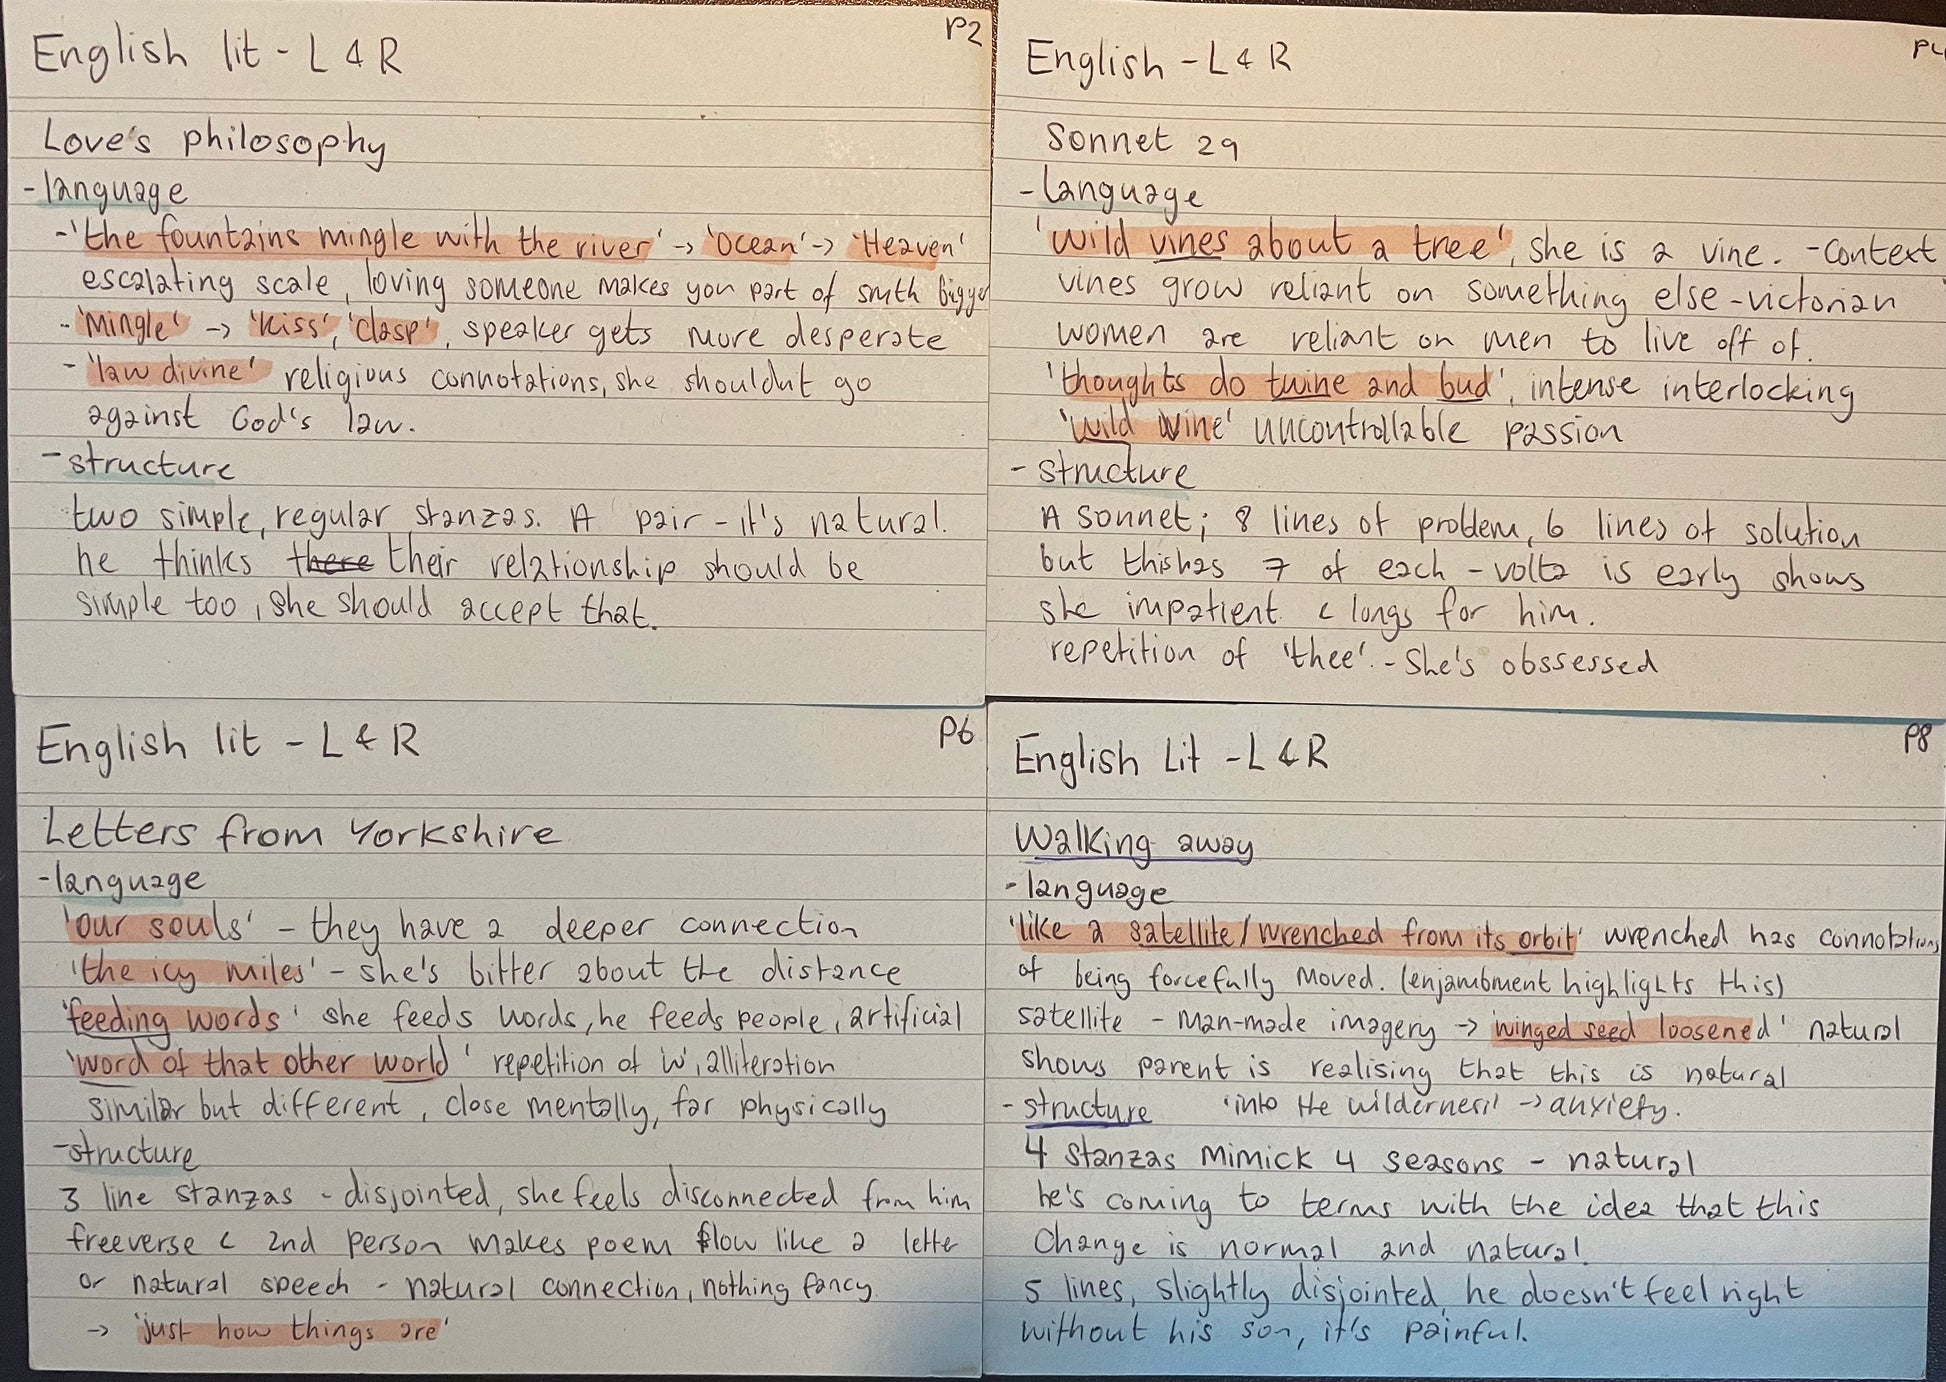 English lit - L & R
P2
Love's philosophy
- language
- 'the fountains mingle with the river' -> 'ocean' -> 'Heaven'
escalating scale, loving someone makes you part of smth bigger
- 'Mingle' -> 'kiss', 'clasp', speaker gets more desperate
- 'law divine' religious connotations, she shouldnt go
against God's law.
- structure
two simple, regular stanzas. A pair - it's natural.
he thinks there their relationship should be
simple too, she should accept that.
English - L & R
P4
Sonnet 29
- language
'wild vines about a tree', she is a vine. - context
vines grow reliant on something else - victorian
women are reliant on men to live off of.
'thoughts do twine and bud', intense interlocking
'wild wine' uncontrollable passion
- structure
A sonnet; 8 lines of problem, 6 lines of solution
but this has 7 of each - volta is early shows
she impatient & longs for him.
repetition of 'thee'. - She's obssessed
English lit - L & R
P6
Letters from Yorkshire
- language
'our souls' - they have a deeper connection
'the icy miles' - she's bitter about the distance
'feeding words' she feeds words, he feeds people, artificial
'word of that other world' repetition of 'w', alliteration
similar but different, close mentally, far physically
- structure
3 line stanzas - disjointed, she feels disconnected from him
freeverse & 2nd person makes poem flow like a lette
or natural speech - natural connection, nothing fancy
-> 'just how things are'
English Lit - L & R
P8
Walking away
- language
'like a satellite / wrenched from its orbit' wrenched has connotations
of being forcefully moved. (enjambment highlights this)
satellite - man-made imagery -> winged seed loosened' natural
shows parent is realising that this is natural
- structure 'into the wilderness' -> anxiety.
4 stanzas mimick 4 seasons - natural
he's coming to terms with the idea that this
change is normal and natural.
5 lines, slightly disjointed, he doesn't feel right
without his son, it's painful.